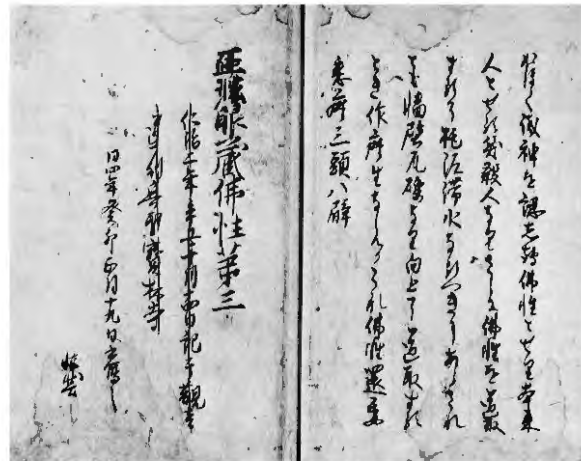 おほく識神を認して佛性とせり本來
人とせる笑殺人なりさらに佛性を道取
するに拕泥滞水なるへきにあらされ
とも牆壁瓦礫なり向上に道取する
とき作麼生ならんかこれ佛性還委
悉麼三頭八臂
正法眼藏佛性第三
仁治二年辛丑十月十四日記于觀音
導利興聖寳林寺
同四年癸卯正月十九日書寫之
懷弉